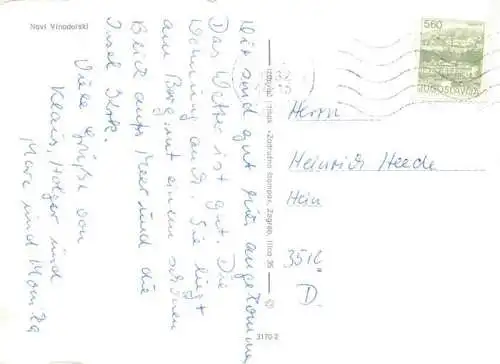 Novi Vinodolski
Wir sind gut hier angekommen.
Das Wetter ist gut. Die
Wohnung auch. Sie liegt
am Berg mit einem schönen
Blick aufs Meer und die
Insel Krk.
Viele Grüße von
Klaus, Holger und
Marc und Monika
5.60
JUGOSLAVIJA
Herrn
Heinrich Heede
D.
Izdavač i tisak »Zadružna štampa«, Zagreb, Ilica 35
3170-2